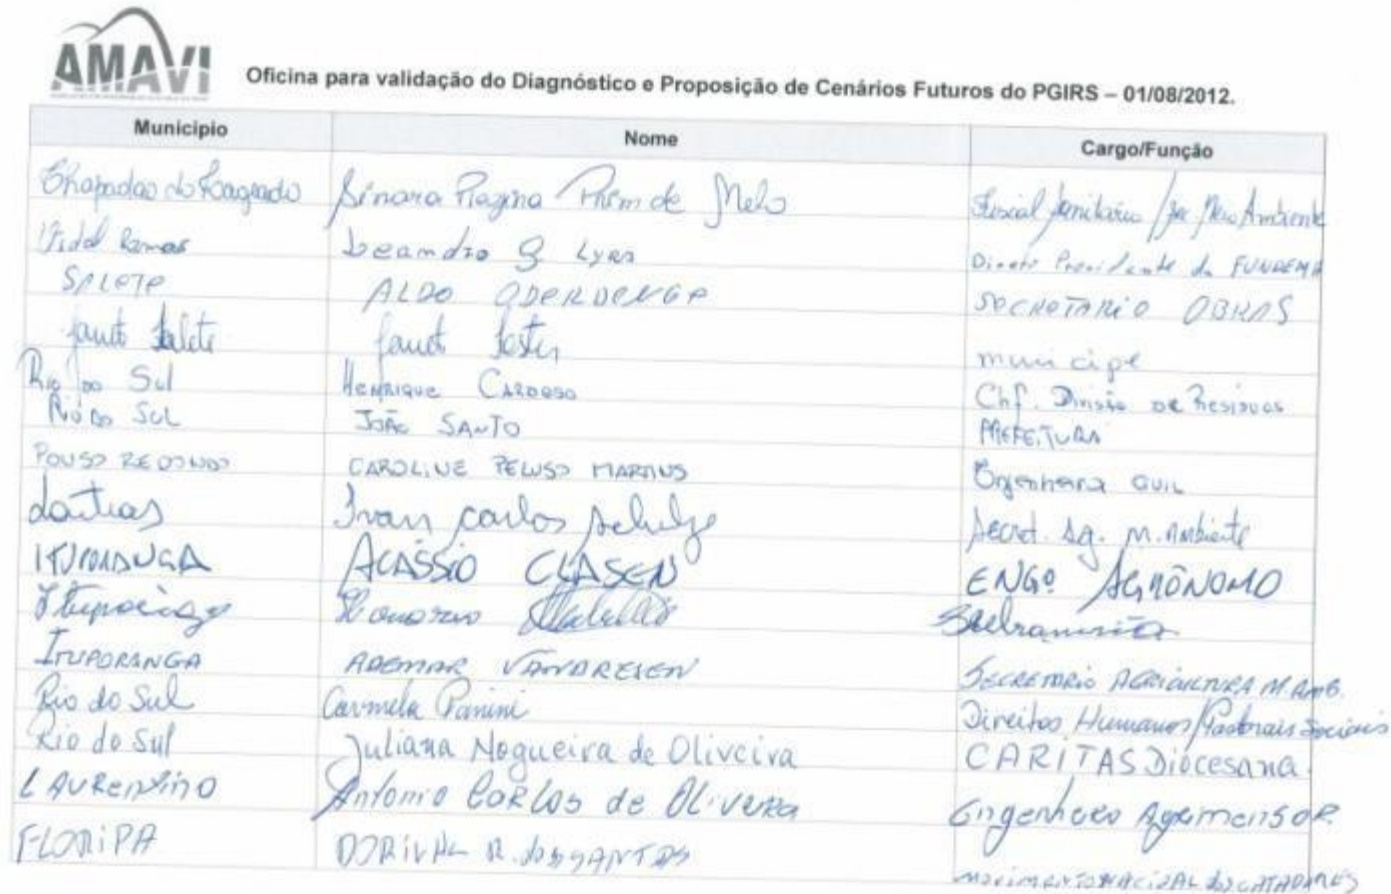 AMAVI
Oficina para validação do Diagnóstico e Proposição de Cenários Futuros do PGIRS – 01/08/2012.
Município Nome Cargo/Função
Chapadão do Lageado Sinara Regina de Melo Fiscal Sanitário / Meio Ambiente
Vidal Ramos Leandro G Lyra Direto Presidente da FUNDEMA
SALETE ALDO SECRETARIO OBRAS
Salete munícipe
Rio do Sul HENRIQUE CARDOSO Chf. Divisão DE RESIDUOS
Rio do Sul JOÃO SANTO PREFEITURA
POUSO REDONDO CAROLINE PELUSO MARTINS Engenheira CIVIL
Ivan Carlos Schulze Secret. Ag. M. Ambiente
ITUPORANGA ACÁSSIO CLASEN ENGº AGRÔNOMO
ITUPORANGA ADEMAR VANDRESEN SECRETARIO AGRICULTURA M. AMB.
Rio do Sul Carmela Panini Direitos Humanos/Pastorais Sociais
Rio do Sul Juliana Nogueira de Oliveira CARITAS Diocesana
LAURENTINO Antonio CARLOS de OLIVERA Engenheiro AgrimensOR
FLORIPA DORIVAL R. DOS SANTOS MOVIMENTO NACIONAL DOS CATADORES